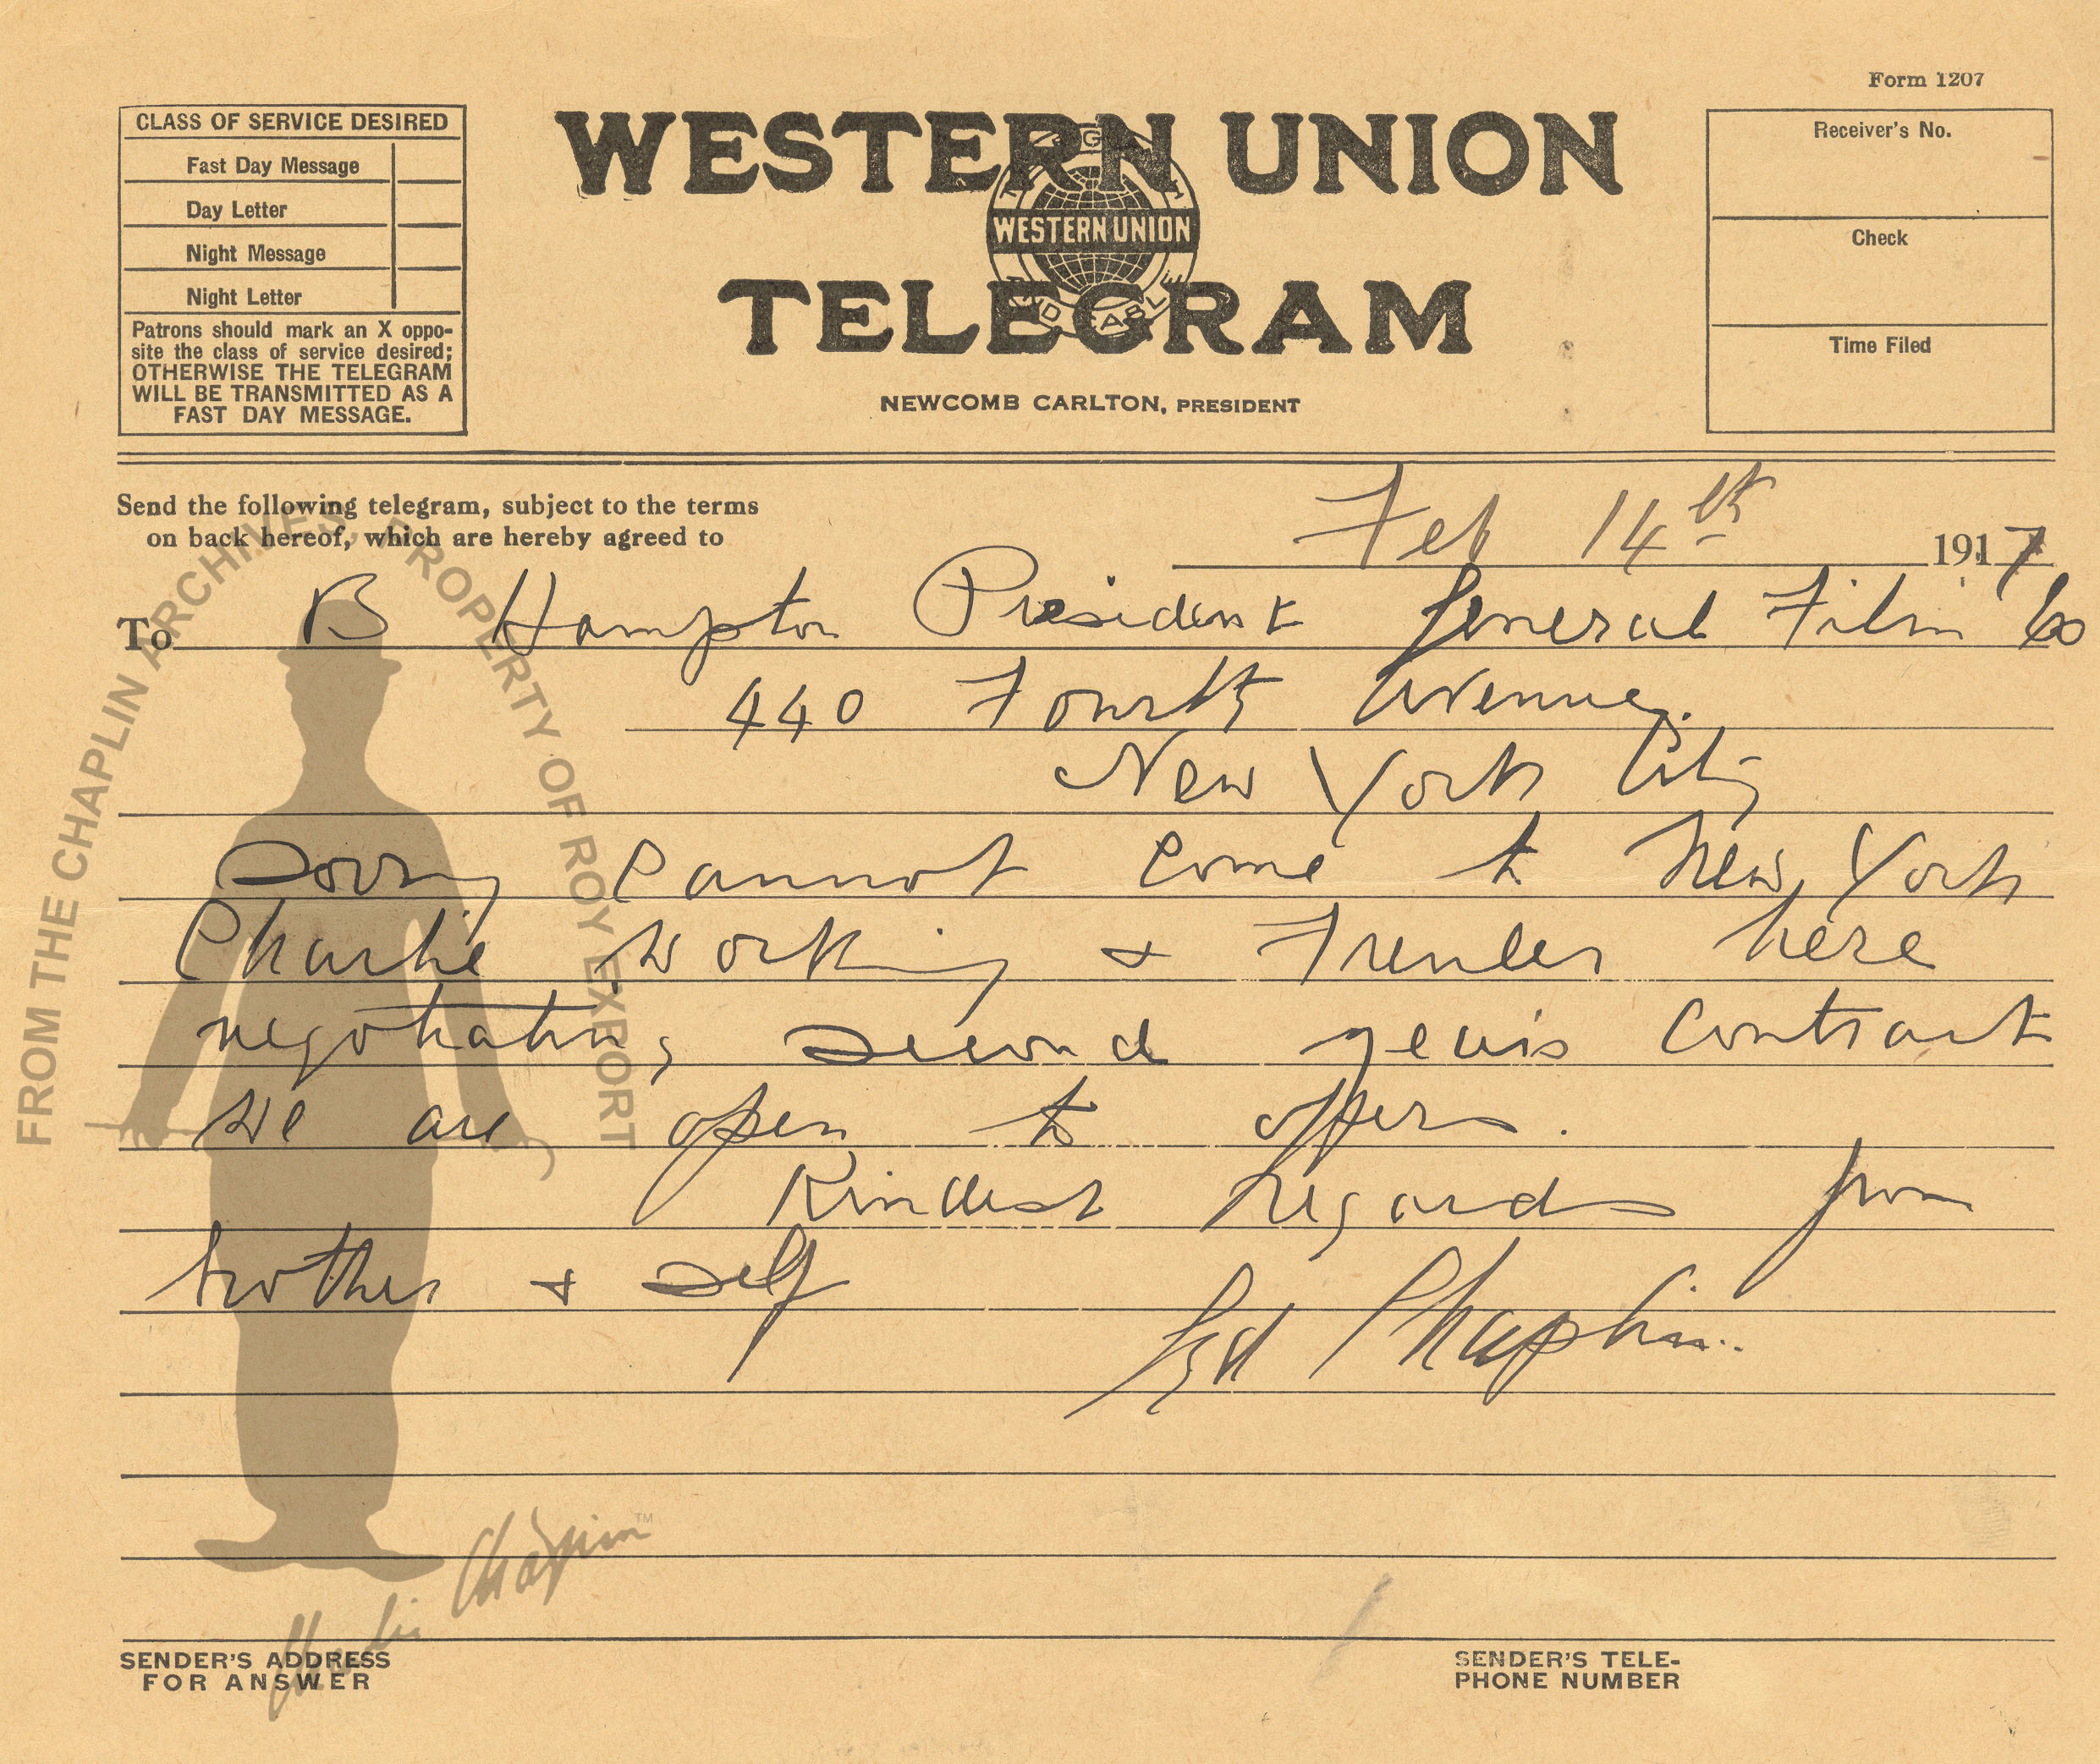 Form 1207
CLASS OF SERVICE DESIRED
Fast Day Message
Day Letter
Night Message
Night Letter
Patrons should mark an X oppo-
site the class of service desired;
OTHERWISE THE TELEGRAM
WILL BE TRANSMITTED AS A
FAST DAY MESSAGE.
WESTERN UNION
WESTERN UNION
TELEGRAM
NEWCOMB CARLTON, PRESIDENT
Receiver's No.
Check
Time Filed
Send the following telegram, subject to the terms
on back hereof, which are hereby agreed to
Feb 14th 1917
To B Hampton President General Film Co
440 Fourth Avenue.
New York City
Sorry Cannot Come to New York
Charlie working & Freuler here
negotiating second years Contract
we are open to offers.
Kindest regards from
brother & self
Syd Chaplin
FROM THE CHAPLIN ARCHIVES, PROPERTY OF ROY EXPORT
Charlie Chaplin™
SENDER'S ADDRESS
FOR ANSWER
SENDER'S TELE-
PHONE NUMBER